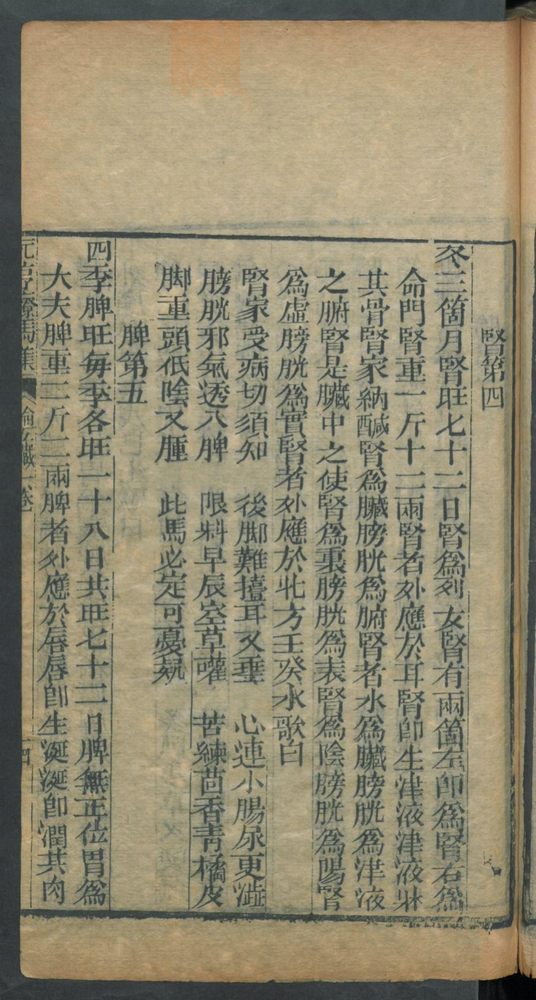 腎第四
冬三箇月腎旺七十二日腎爲列女腎有兩箇左卽爲腎右爲
命門腎重一斤十二兩腎者外應於耳腎卽生津液津液牀
其骨腎家納醎腎爲臟膀胱爲腑腎者水爲臟膀胱爲津液
之腑腎是臟中之使腎爲裏膀胱爲表腎爲陰膀胱爲陽腎
爲虛膀胱爲實腎者外應於北方壬癸水歌曰
腎家受病切須知 後脚難擡耳又垂 心連小腸尿更澁
膀胱邪氣透入脾 限料早辰空草嚾 苦練茴香靑橘皮
脚重頭低陰又腫 此馬必定可憂疑
脾第五
四季脾旺每季各旺一十八日共旺七十二日脾無正位胃爲
大夫脾重二斤二兩脾者外應於唇唇卽生涎涎卽潤其肉
元亨療馬集 論五臟 六卷 四